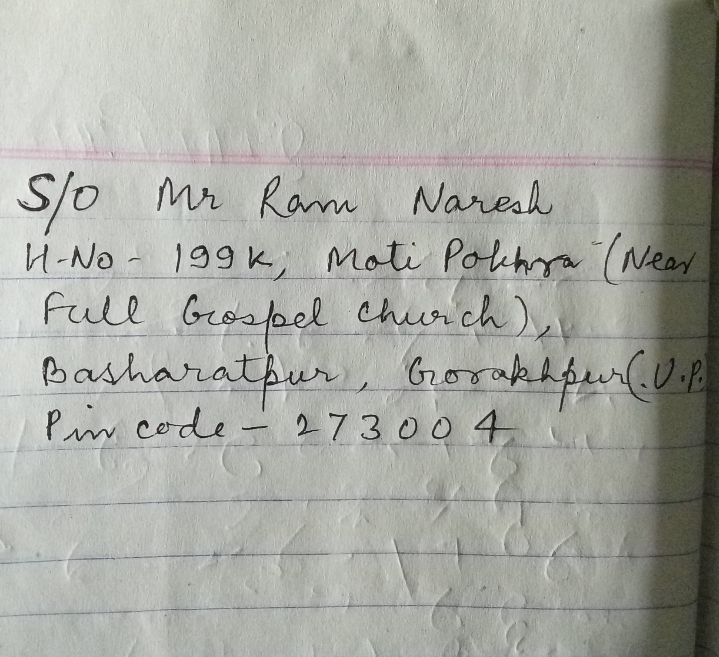 S/O Mr Ram Naresh
H-No - 199K, Moti Pokhra (Near
Full Gospel Church),
Basharatpur, Gorakhpur (U.P.
Pin code - 273004